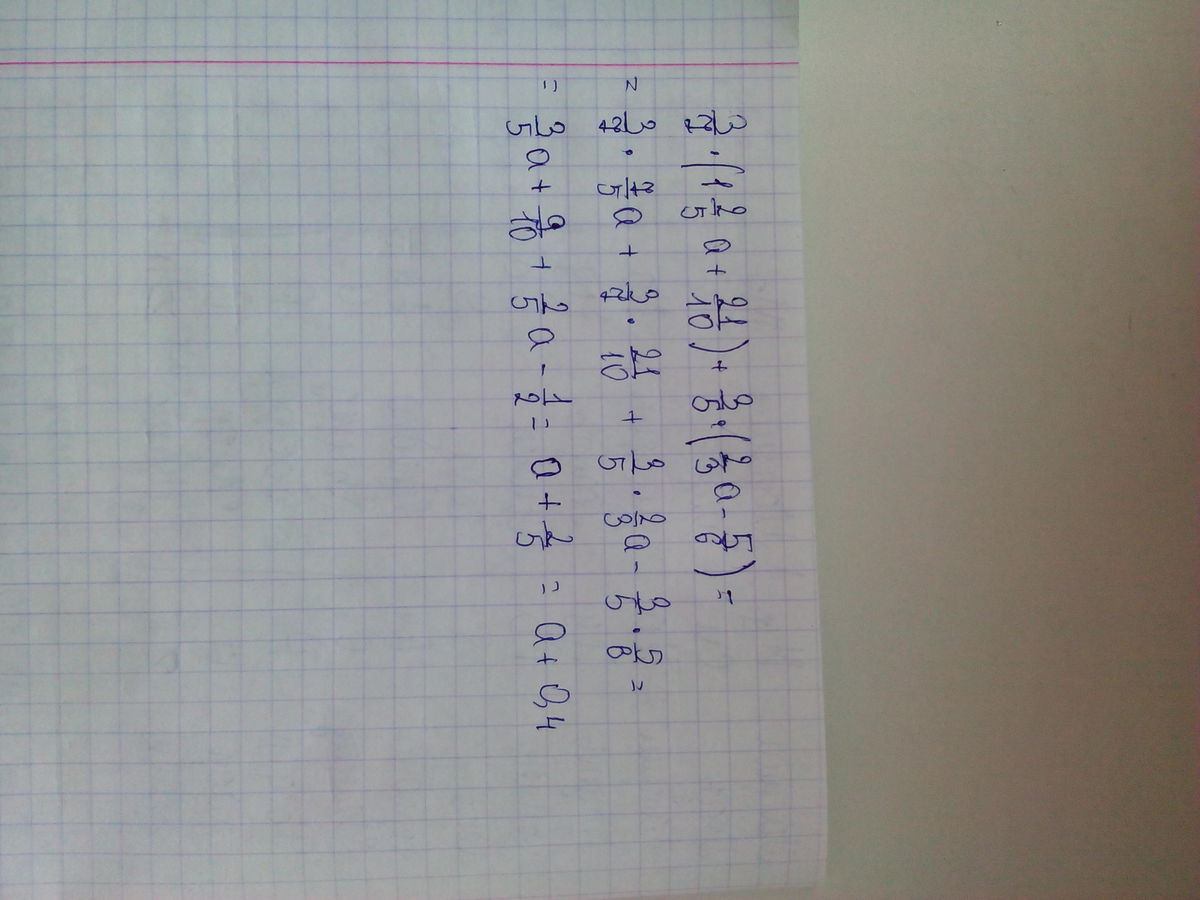 3/7 · (1 2/5 a + 21/10) + 3/5 · (2/3 a - 5/6) =
= 3/7 · 7/5 a + 3/7 · 21/10 + 3/5 · 2/3 a - 3/5 · 5/6 =
= 3/5 a + 9/10 + 2/5 a - 1/2 = a + 2/5 = a + 0,4